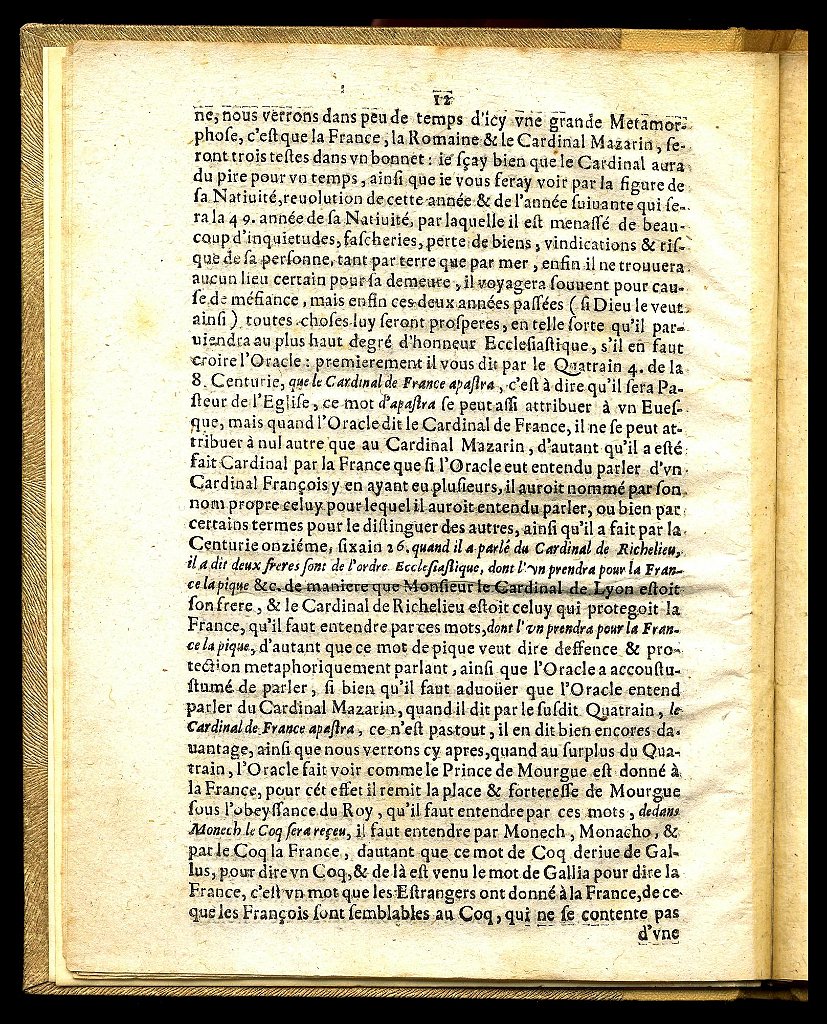 12
ne, nous verrons dans peu de temps d'icy vne grande Metamor-
phoſe, c'eſt que la France, la Romaine & le Cardinal Mazarin, ſe-
ront trois teſtes dans vn bonnet : ie ſçay bien que le Cardinal aura
du pire pour vn temps, ainſi que ie vous feray voir par la figure de
ſa Natiuité, reuolution de cette année & de l'année ſuiuante qui ſe-
ra la 49. année de ſa Natiuité, par laquelle il eſt menaſſé de beau-
coup d'inquietudes, faſcheries, perte de biens, vindications & riſ-
que de ſa perſonne, tant par terre que par mer, enfin il ne trouuera
aucun lieu certain pour ſa demeure, il voyagera ſouuent pour cau-
ſe de méfiance, mais enfin ces deux années paſſées (ſi Dieu le veut
ainſi) toutes choſes luy ſeront proſperes, en telle ſorte qu'il par-
uiendra au plus haut degré d'honneur Eccleſiaſtique, s'il en faut
croire l'Oracle : premierement il vous dit par le Quatrain 4. de la
8. Centurie, que le Cardinal de France apaſtra, c'eſt à dire qu'il ſera Pa-
ſteur de l'Egliſe, ce mot d'apaſtra ſe peut aſſi attribuer à vn Eueſ-
que, mais quand l'Oracle dit le Cardinal de France, il ne ſe peut at-
tribuer à nul autre que au Cardinal Mazarin, d'autant qu'il a eſté
fait Cardinal par la France que ſi l'Oracle eut entendu parler d'vn
Cardinal François y en ayant eu pluſieurs, il auroit nommé par ſon
nom propre celuy pour lequel il auroit entendu parler, ou bien par
certains termes pour le diſtinguer des autres, ainſi qu'il a fait par la
Centurie onziéme, ſixain 26. quand il a parlé du Cardinal de Richelieu,
il a dit deux freres ſont de l'ordre Eccleſiaſtique, dont l'vn prendra pour la Fran-
ce la pique &c. de maniere que Monſieur le Cardinal de Lyon eſtoit
ſon frere, & le Cardinal de Richelieu eſtoit celuy qui protegoit la
France, qu'il faut entendre par ces mots, dont l'vn prendra pour la Fran-
ce la pique, d'autant que ce mot de pique veut dire deffence & pro-
tection metaphoriquement parlant, ainſi que l'Oracle a accouſtu-
ſtumé de parler, ſi bien qu'il faut aduoüer que l'Oracle entend
parler du Cardinal Mazarin, quand il dit par le ſuſdit Quatrain, le
Cardinal de France apaſtra, ce n'eſt pas tout, il en dit bien encores da-
uantage, ainſi que nous verrons cy apres, quand au ſurplus du Qua-
train, l'Oracle fait voir comme le Prince de Mourgue eſt donné à
la France, pour cét effet il remit la place & fortereſſe de Mourgue
ſous l'obeyſſance du Roy, qu'il faut entendre par ces mots, dedans
Monech le Coq ſera reçeu, il faut entendre par Monech, Monacho, &
par le Coq la France, dautant que ce mot de Coq deriue de Gal-
lus, pour dire vn Coq, & de là eſt venu le mot de Gallia pour dire la
France, c'eſt vn mot que les Eſtrangers ont donné à la France, de ce
que les François ſont ſemblables au Coq, qui ne ſe contente pas
d'vne